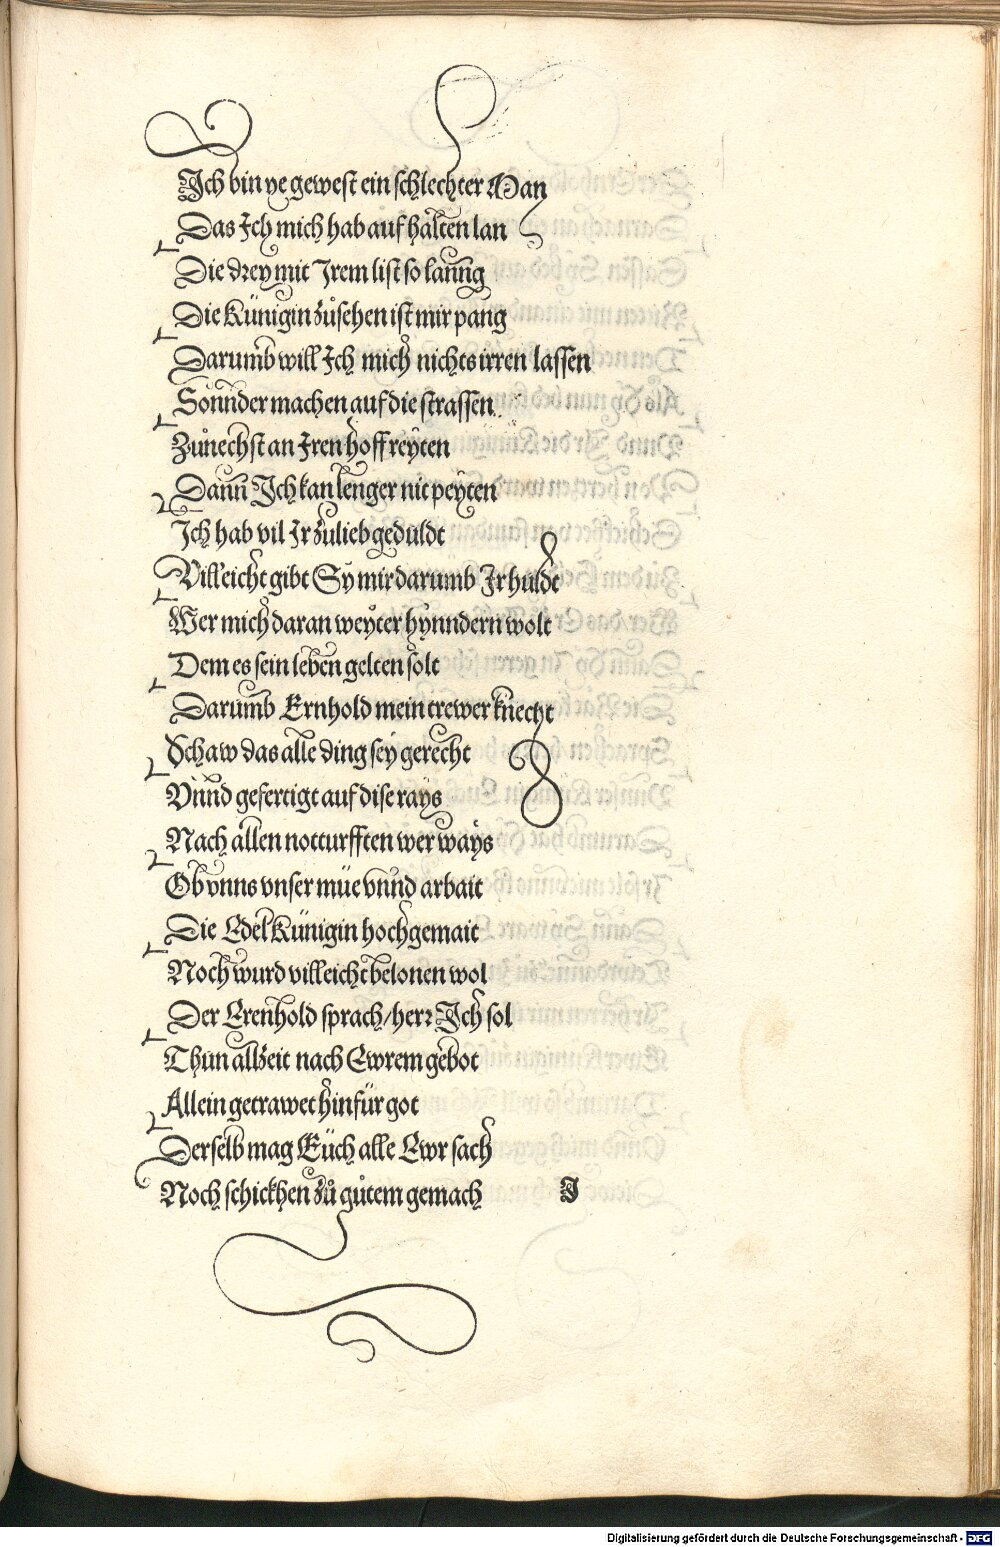 Ich bin ye gewest ein schlechter Man
Das Ich mich hab auf halten lan
Die drey mit Irem list so lanng
Die Künigin zůsehen ist mir pang
Darumb will Ich mich nichts irren lassen
Sonnder machen auf die strassen
Zůnechst an Iren hoff reyten
Dann Ich kan lenger nit peyten
Ich hab vil Ir zulieb geduldt
Villeicht gibt Sy mir darumb Ir huldt
Wer mich daran weyter hynndern wolt
Dem es sein leben gelten solt
Darumb Ernhold mein trewer knecht
Schaw das alle ding sey gerecht
Vnnd gefertigt auf dise rays
Nach allen notturfften wer ways
Ob vnns vnser müe vnnd arbait
Die Edel Künigin hochgemait
Noch wurd villeicht belonen wol
Der Erenhold sprach / herr Ich sol
Thun allzeit nach Ewrem gebot
Allein getrawet hinfür got
Derselb mag Eüch alle Ewr sach
Noch schickhen zů gůtem gemach J
Digitalisierung gefördert durch die Deutsche Forschungsgemeinschaft - DFG